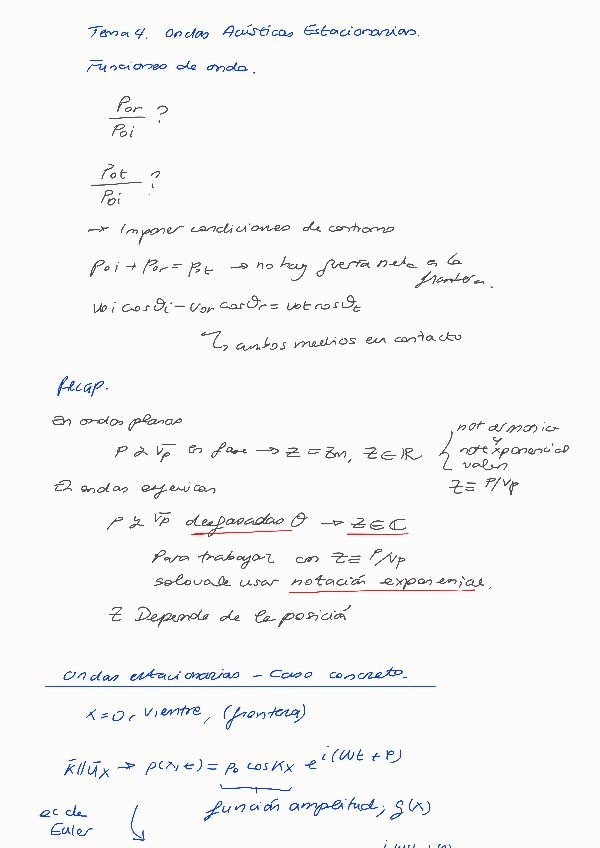 Tema 4. Ondas Acústicas Estacionarias.
Funciones de onda.
Por / Poi ?
Pot / Poi ?
→ Imponer condiciones de contorno
Poi + Por = Pot → no hay fuerza neta a la frontera.
voi cosθi - vor cosθr = vot cosθt
↳ ambos medios en contacto
Recap.
En ondas planas
P y v̄p en fase → Z = Zm, Z∈ℝ { not armonica y not exponencial valen
Z ≡ P/vp
En ondas esfericas
P y v̄p desfasadas θ → Z∈ℂ
Para trabajar con Z ≡ P/vp
solo vale usar notación exponencial.
Z Depende de la posición
Ondas estacionarias - Caso concreto.
x=0, vientre, (frontera)
k̄ ∥ ūx → p(x,t) = po cos kx e^i(wt + φ)
ec de Euler
función amplitud, g(x)